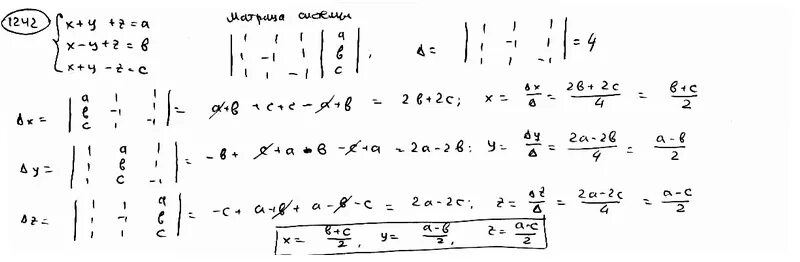 1242 { x+y+z=a
x-y+z=b
x+y-z=c
Матрица системы
| 1 1 1 | a |
| 1 -1 1 | b |
| 1 1 -1 | c | ,
Δ= | 1 1 1 |
| 1 -1 1 |
| 1 1 -1 | = 4
Δx= | a 1 1 |
| b -1 1 |
| c 1 -1 | = a+b+c+c-a+b = 2b+2c; x= Δx/Δ = (2b+2c)/4 = (b+c)/2
Δy= | 1 a 1 |
| 1 b 1 |
| 1 c -1 | = -b+c+a-b-c+a = 2a-2b; y= Δy/Δ = (2a-2b)/4 = (a-b)/2
Δz= | 1 1 a |
| 1 -1 b |
| 1 1 c | = -c+a+b+a-b-c = 2a-2c; z= Δz/Δ = (2a-2c)/4 = (a-c)/2
x= (b+c)/2, y= (a-b)/2, z= (a-c)/2